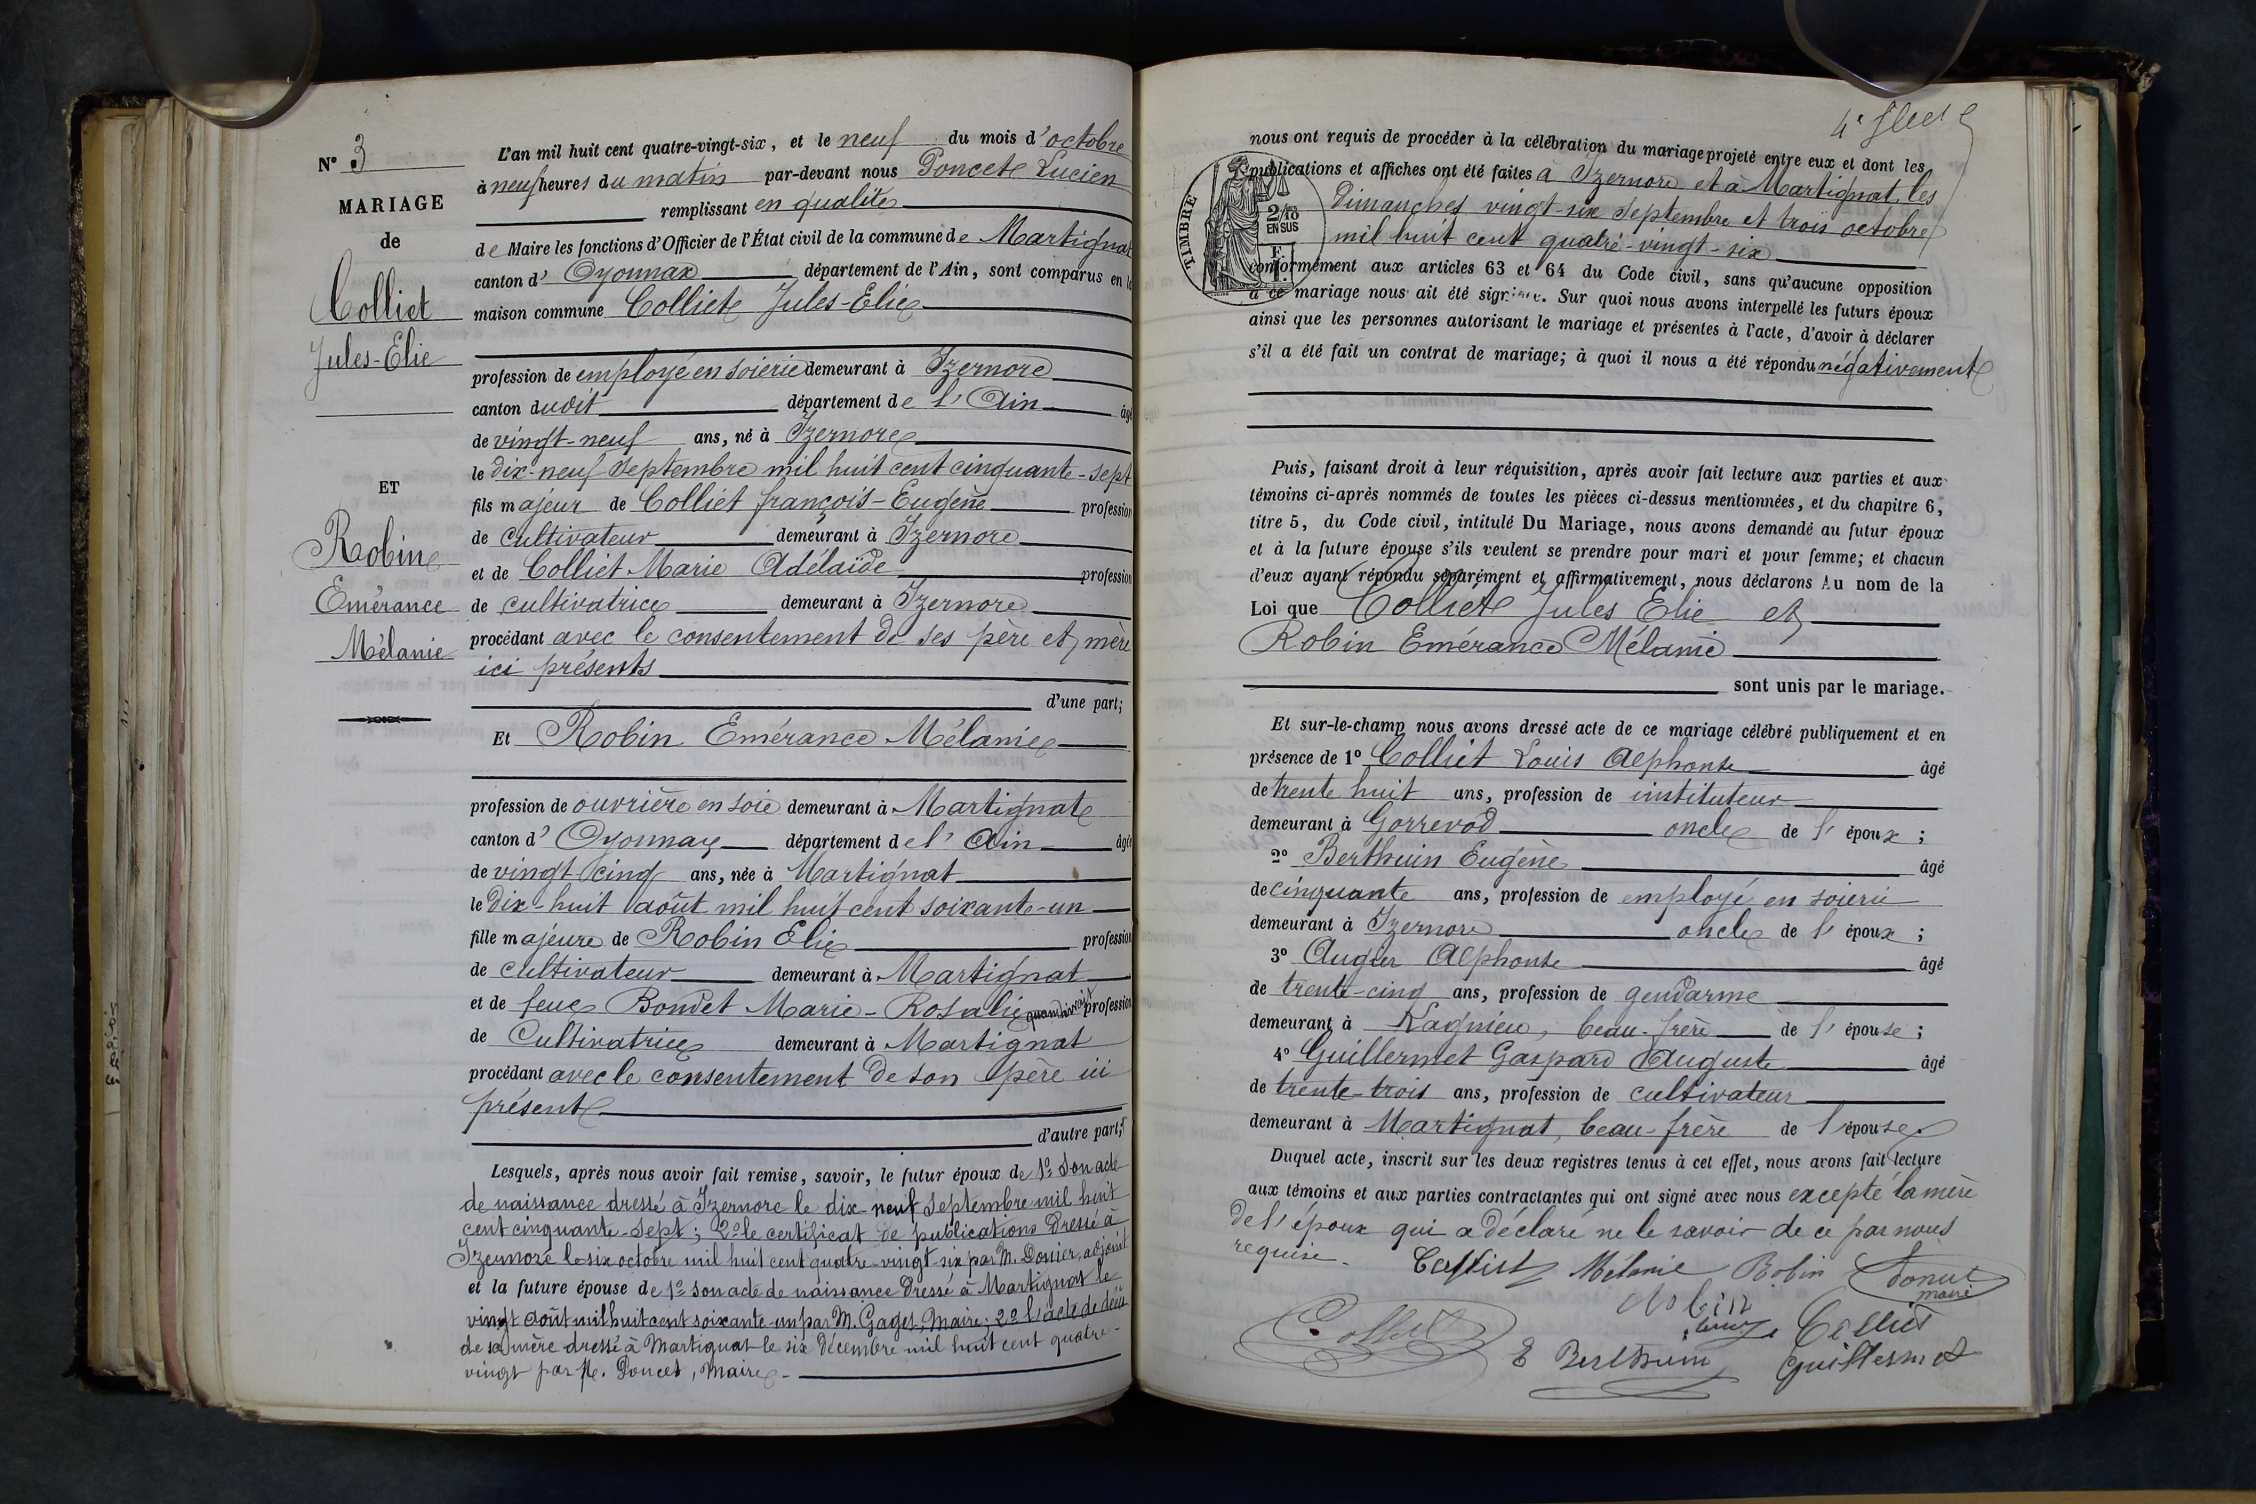 N° 3
MARIAGE
de
Colliet
Jules-Elie
ET
Robin
Emérance
Mélanie
L'an mil huit cent quatre-vingt-six, et le neuf du mois d'octobre
à neuf heures du matin par-devant nous Poncet Lucien
remplissant en qualité
de Maire les fonctions d'Officier de l'État civil de la commune de Martignat
canton d' Oyonnax département de l'Ain, sont comparus en la
maison commune Colliet Jules-Elie
profession de employé en soierie demeurant à Izernore
canton dudit département de l'Ain âgé
de vingt-neuf ans, né à Izernore
le dix-neuf Septembre mil huit cent cinquante-sept
fils majeur de Colliet françois-Eugène profession
de cultivateur demeurant à Izernore
et de Colliet Marie Adélaïde profession
de cultivatrice demeurant à Izernore
procédant avec le consentement de ses père et mère
ici présents
d'une part;
Et Robin Emérance Mélanie
profession de ouvrière en soie demeurant à Martignat
canton d' Oyonnax département de l'Ain âgée
de vingt cinq ans, née à Martignat
le dix-huit août mil huit cent soixante-un
fille majeure de Robin Elie profession
de cultivateur demeurant à Martignat
et de feue Bondet Marie-Rosalie quand vivait profession
de Cultivatrice demeurant à Martignat
procédant avec le consentement de son père ici
présent
d'autre part;
Lesquels, après nous avoir fait remise, savoir, le futur époux de 1° Son acte
de naissance dressé à Izernore le dix-neuf Septembre mil huit
cent cinquante-sept; 2° le certificat de publications dressé à
Izernore le six octobre mil huit cent quatre-vingt-six par M. Donier, adjoint
et la future épouse de 1° son acte de naissance dressé à Martignat le
vingt août mil huit cent soixante-un par M. Gaget, Maire; 2° l'acte de décès
de sa mère dressé à Martignat le six Décembre mil huit cent quatre-
vingt par M. Poncet, Maire.
4e
nous ont requis de procéder à la célébration du mariage projeté entre eux et dont les
publications et affiches ont été faites à Izernore et à Martignat les
Dimanches vingt-six Septembre et trois octobre
mil huit cent quatre-vingt-six
TIMBRE
2/10
EN SUS
conformément aux articles 63 et 64 du Code civil, sans qu'aucune opposition
à ce mariage nous ait été signifiée. Sur quoi nous avons interpellé les futurs époux
ainsi que les personnes autorisant le mariage et présentes à l'acte, d'avoir à déclarer
s'il a été fait un contrat de mariage; à quoi il nous a été répondu négativement
Puis, faisant droit à leur réquisition, après avoir fait lecture aux parties et aux
témoins ci-après nommés de toutes les pièces ci-dessus mentionnées, et du chapitre 6,
titre 5, du Code civil, intitulé Du Mariage, nous avons demandé au futur époux
et à la future épouse s'ils veulent se prendre pour mari et pour femme; et chacun
d'eux ayant répondu séparément et affirmativement, nous déclarons Au nom de la
Loi que Colliet Jules Elie et
Robin Emérance Mélanie
sont unis par le mariage.
Et sur-le-champ nous avons dressé acte de ce mariage célébré publiquement et en
présence de 1° Colliet Louis Alphonse âgé
de trente huit ans, profession de instituteur
demeurant à Gorrevod oncle de l'époux;
2° Berthuin Eugène âgé
de cinquante ans, profession de employé en soierie
demeurant à Izernore oncle de l'époux;
3° Augier Alphonse âgé
de trente-cinq ans, profession de gendarme
demeurant à Lagnieu, beau-frère de l'épouse;
4° Guillermet Gaspard Auguste âgé
de trente-trois ans, profession de cultivateur
demeurant à Martignat, beau-frère de l'épouse.
Duquel acte, inscrit sur les deux registres tenus à cet effet, nous avons fait lecture
aux témoins et aux parties contractantes qui ont signé avec nous excepté la mère
de l'époux qui a déclaré ne le savoir de ce par nous
requise.
Colliet Mélanie Robin Poncet
maire
Robin
Colliet Colliet
E Berthuin Guillermet